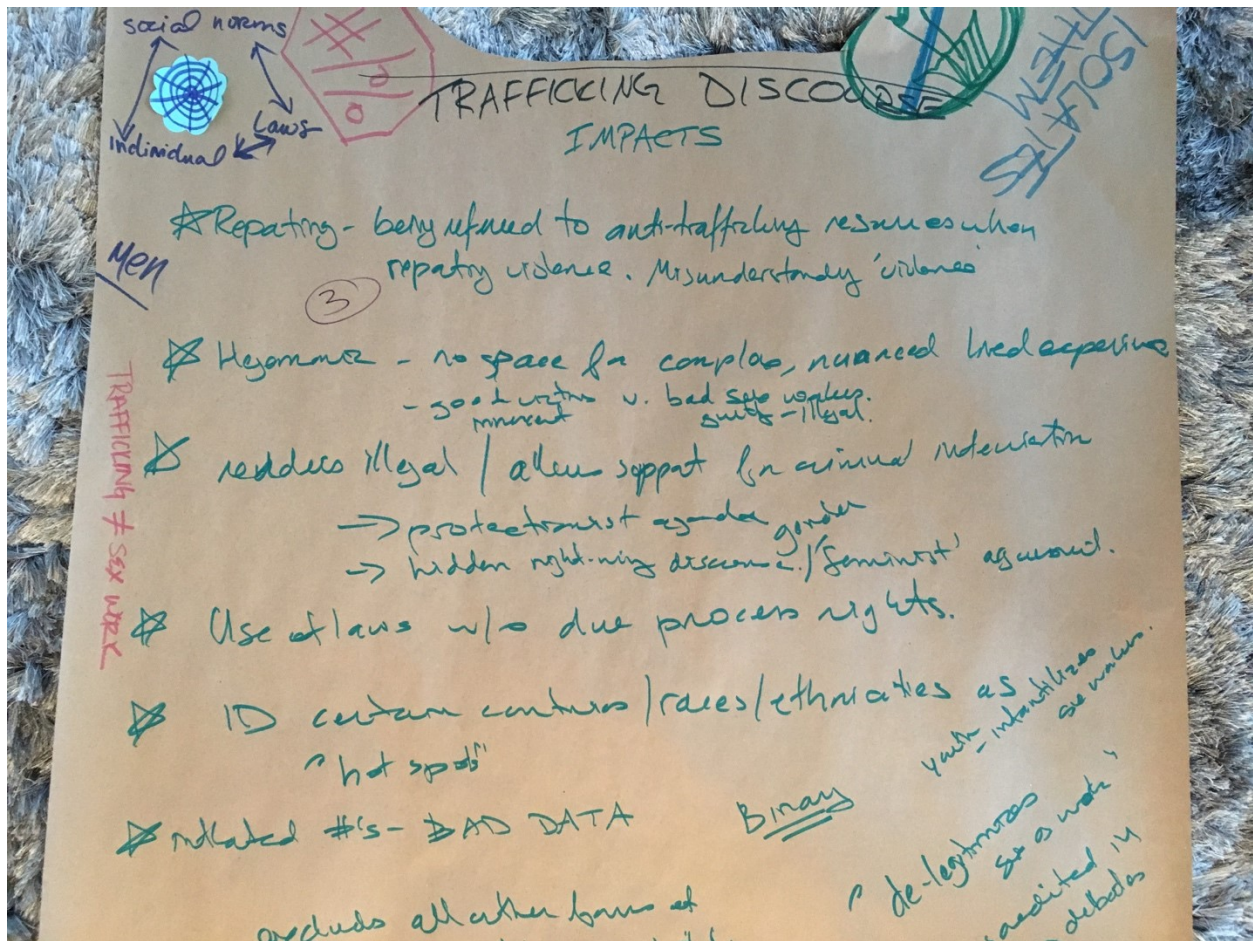 social norms
Laws
individual
TRAFFICKING DISCOURSE
IMPACTS
ISOLATES
THEM
Men
★ Reporting - being referred to anti-trafficking resources when
reporting violence. Misunderstanding 'violence'
3
★ Hegemonic - no space for complex, nuanced lived experience
- good victims v. bad sex workers.
innocent guilty - illegal.
★ renders illegal / allows support for criminal intervention
→ protectionist agenda gender
→ hidden right-wing discourse / 'feminist' argument.
TRAFFICKING ≠ SEX WORK
★ Use of laws w/o due process rights.
★ ID certain countries/races/ethnicities as
"hot spots"
youth - infantilizes
sex workers.
★ Inflated #'s - BAD DATA
Binary
"de-legitimizes
sex as work"
in
debates
all other forms of